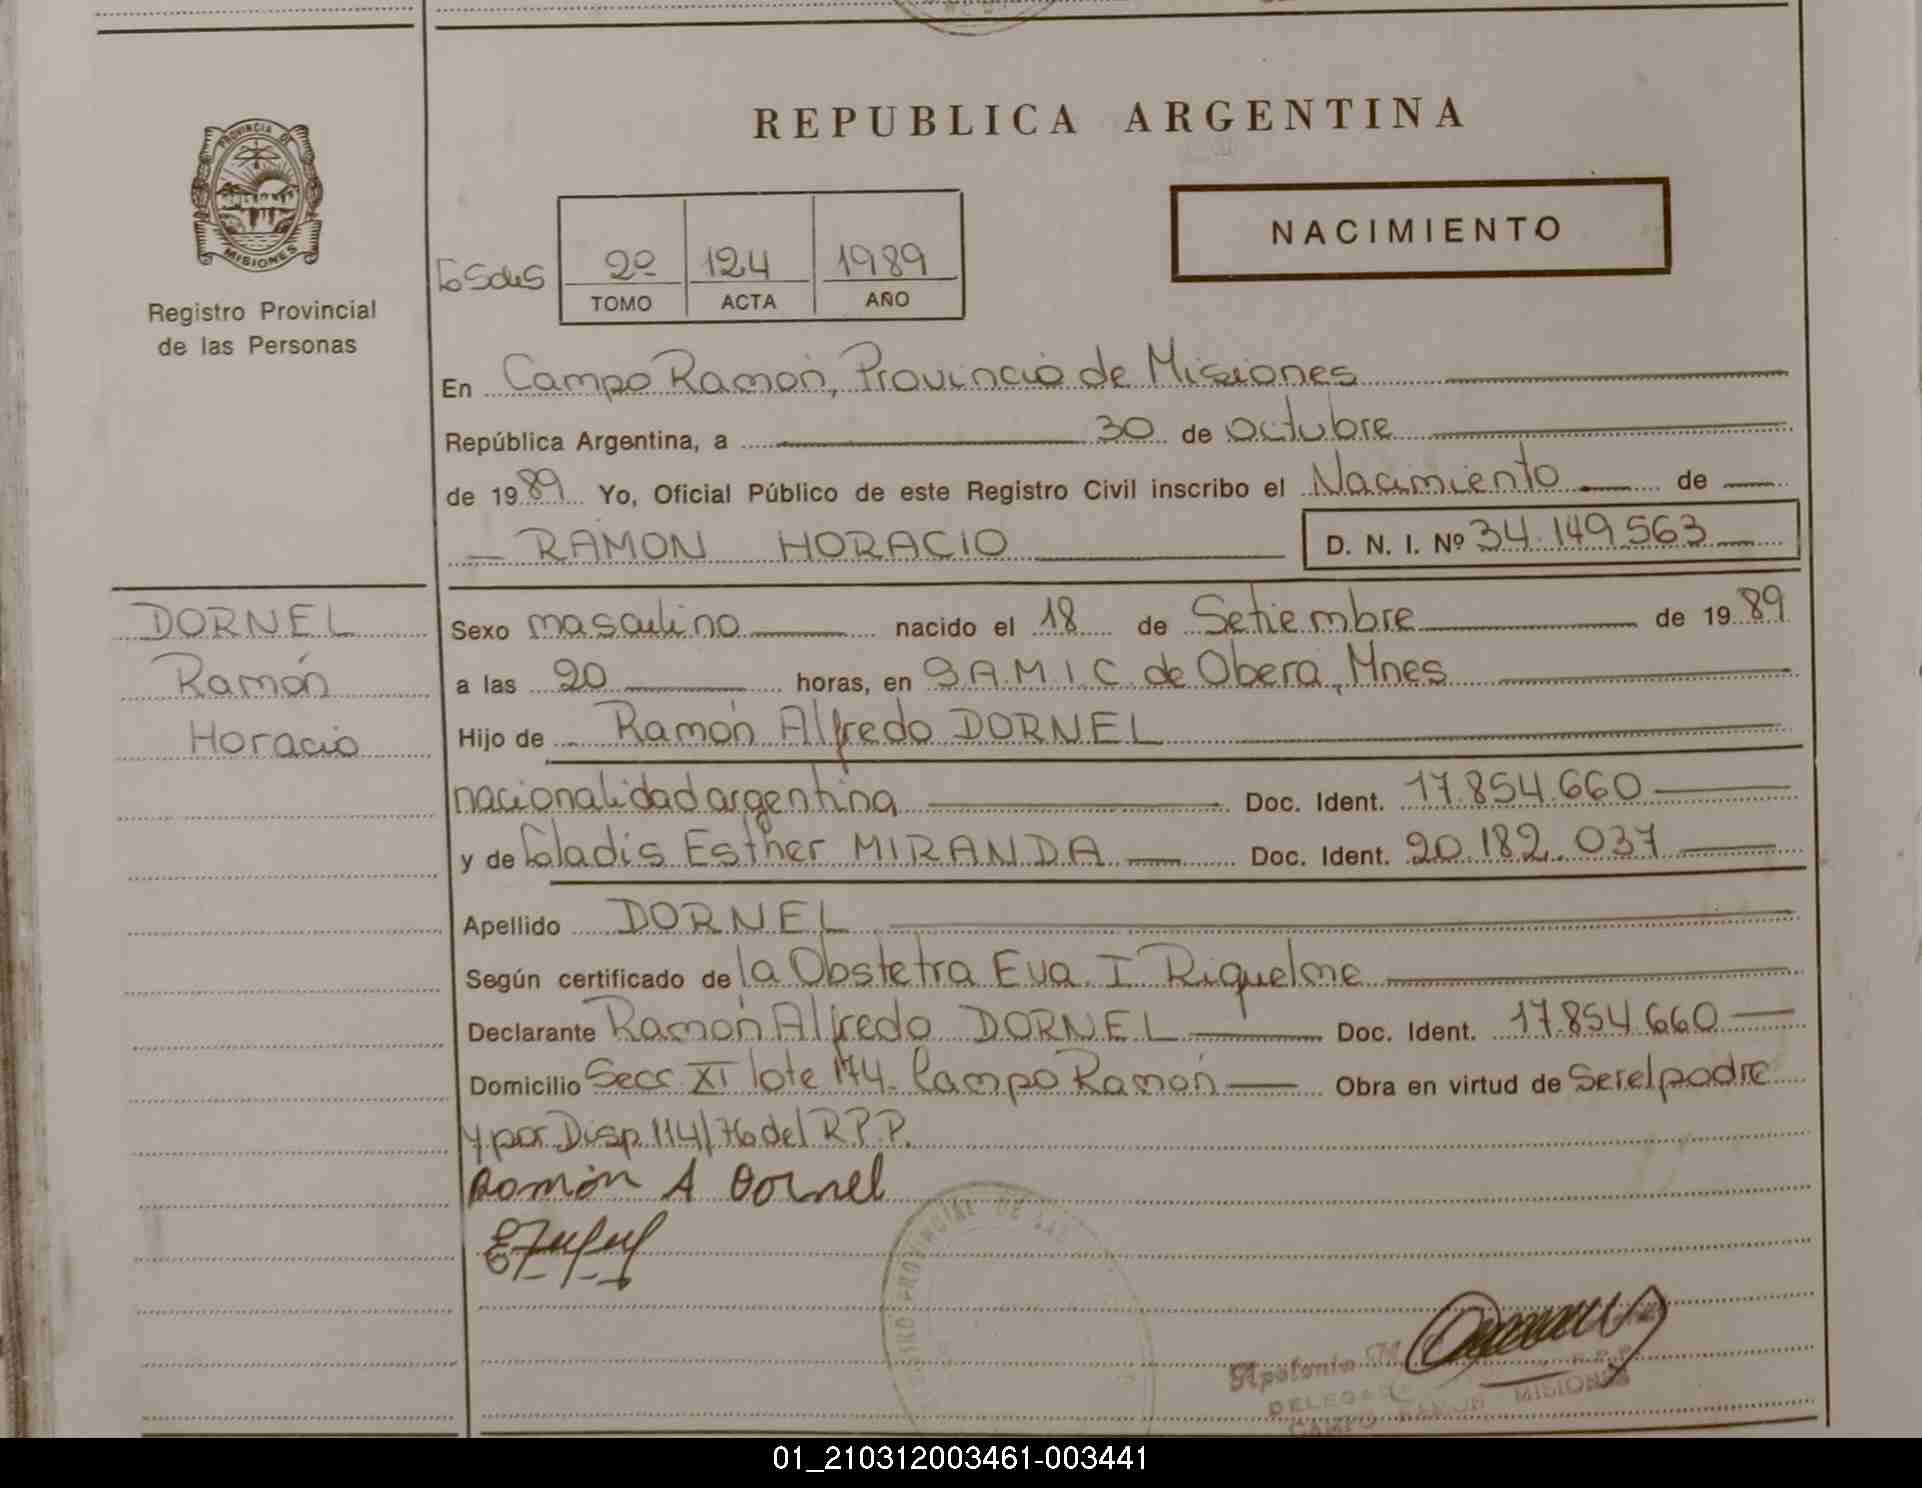 REPUBLICA ARGENTINA
PROVINCIA DE
MISIONES
Registro Provincial
de las Personas
NACIMIENTO
2º 124 1989
TOMO ACTA AÑO
En Campo Ramón, Provincia de Misiones
República Argentina, a 30 de Octubre
de 1989 Yo, Oficial Público de este Registro Civil inscribo el Nacimiento de
RAMON HORACIO D. N. I. Nº 34.149.563
DORNEL
Ramón
Horacio
Sexo masculino nacido el 18 de Setiembre de 1989
a las 20 horas, en S.A.M.I.C. de Oberá, Mnes
Hijo de Ramón Alfredo DORNEL
nacionalidad argentina Doc. Ident. 17.854.660
y de Gladis Esther MIRANDA Doc. Ident. 20.182.037
Apellido DORNEL
Según certificado de la Obstetra Eva I Riquelme
Declarante Ramón Alfredo DORNEL Doc. Ident. 17.854.660
Domicilio Secc XI lote 174. Campo Ramón Obra en virtud de Ser el padre
y por Disp 114/76 del R.P.P.
Ramón A Dornel
PROVINCIAL DE LAS
Apolonia
CAMPO RAMON MISIONES
01_210312003461-003441